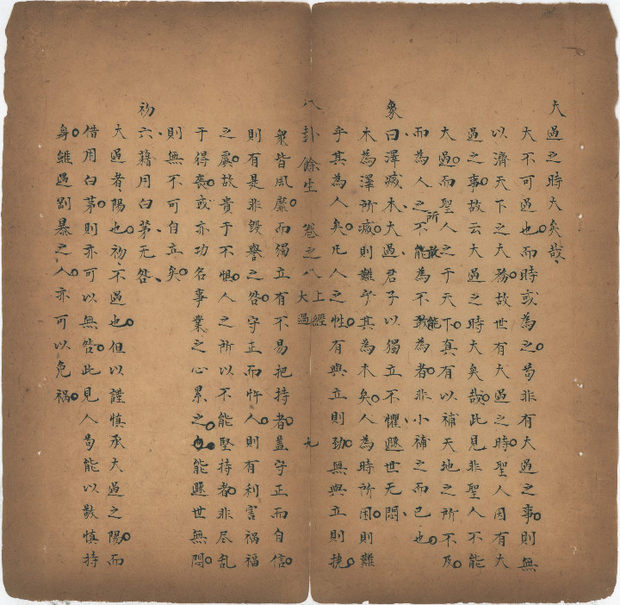 大過之時大矣哉
大不可過也而時或為之苟非有大過之事則無
以濟天下之大務故世有大過之時聖人因有大
過之事故云大過之時大矣哉此見非聖人不能
大過而聖人之于天下真有以補天地之所不及
而為人之所不能為不敢為者非小補之而已也
象曰澤滅木大過君子以獨立不懼遯世无悶
木為澤所滅則難乎其為木矣人為時所困則難
乎其為人矣凡人之性有與立則勁無與立則撓
八卦餘生 卷之八 上經 大過 九
衆皆風靡而獨立有不易把持者蓋守正而自信
則有是非毀譽之咎守正而忤人則有利害禍福
之虞故貴于不懼人之所以不能堅持者非盡亂
于得喪或亦功名事業之心累之也能遯世無悶
則無不可自立矣
初六藉用白茅无咎
大過者陽也初不過也但以謹慎承大過之陽而
借用白茅則亦可以無咎此見人苟能以敬慎持
身雖遇剛暴之人亦可以免禍